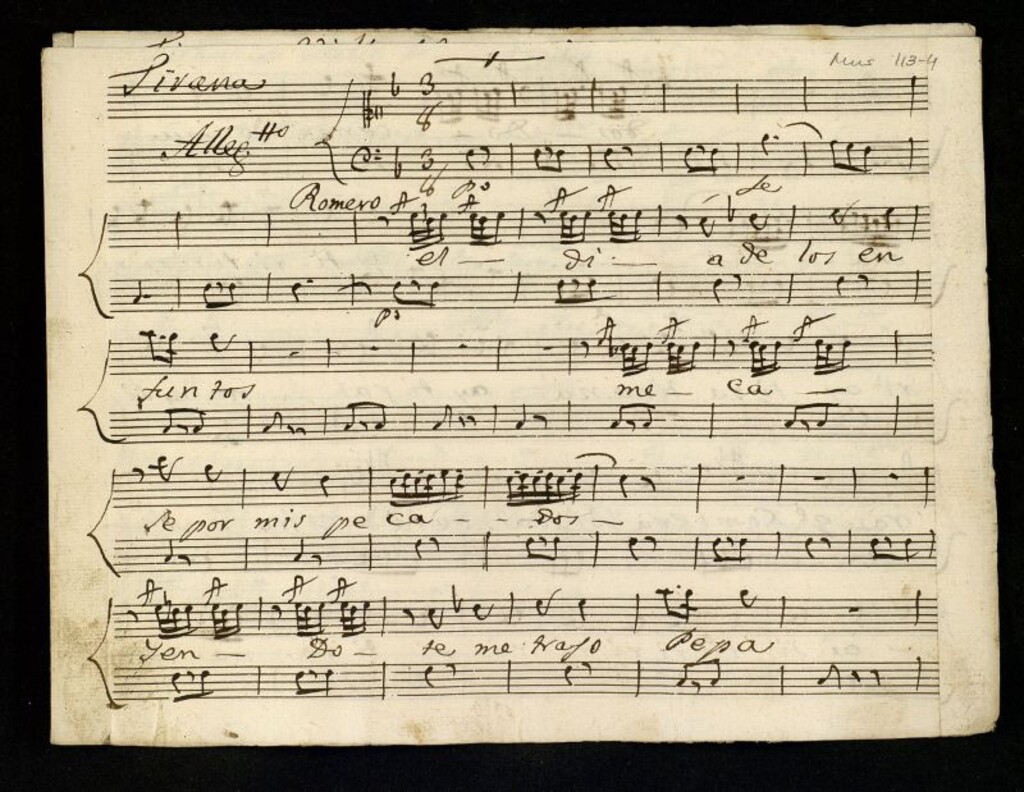 Mus 113-4
Tirana
3
8
Alleg.tto
3
8
po
fe
Romero
el — di — a de los en
po
funtos me — ca —
se por mis pe ca - - dos —
yen — do — te me trajo Pepa